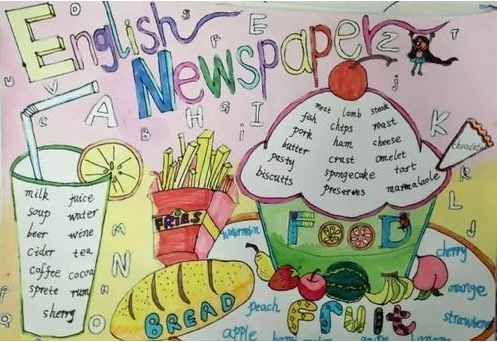 English
Newspaper
milk juice
soup water
beer wine
cider tea
caffee cocoa
sprete rum
sherry
FRIES
BREAD
meat lamb steak
fish chips roast
pork ham cheese
butter crust omelet
pasty spongecake tart
biscuits preserves marmalade
chocolate
FOOD
watermelon
cherry
orange
peach
apple
Fruit